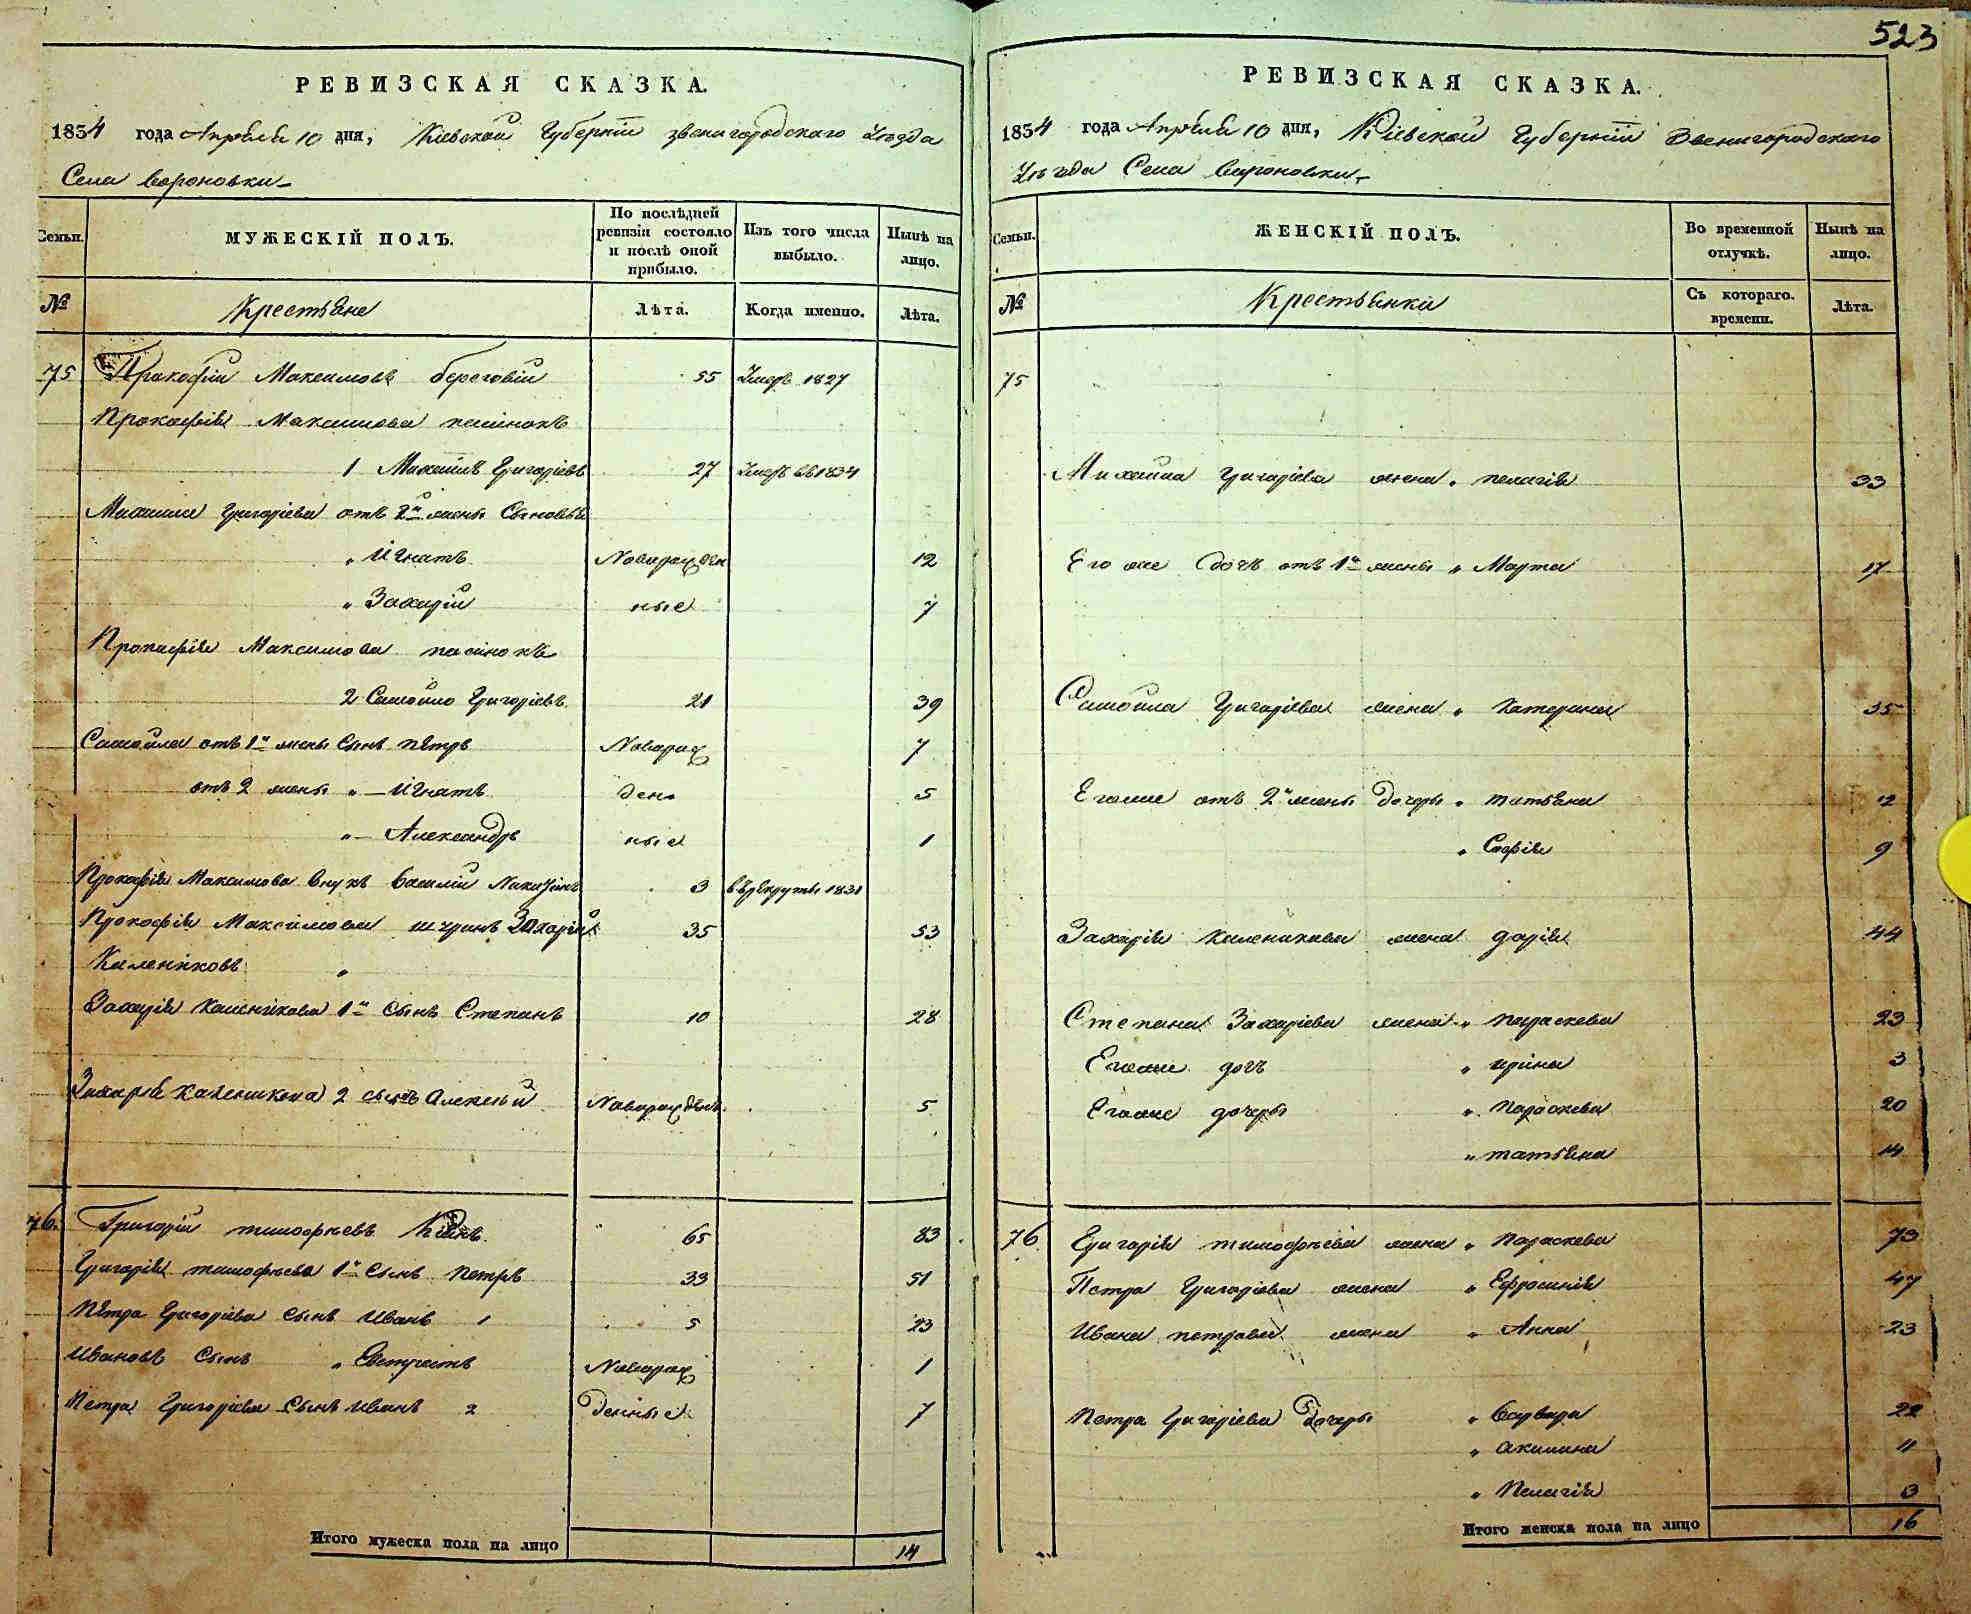 523
РЕВИЗСКАЯ СКАЗКА.
1834 года Апрѣля 10 дня, Кіевской Губерніи звенигородскаго Уѣзда
Села Вороновки
Семьи.
МУЖЕСКІЙ ПОЛЪ.
По послѣдней ревизіи состояло и послѣ оной прибыло.
Изъ того числа выбыло.
Нынѣ на лицо.
№
Крестьяне
Лѣта.
Когда именно.
Лѣта.
75 Прокофій Максимовъ береговій 55 Умеръ 1827
Прокофія Максимова пасінокъ
1 Михайлъ Григоріевъ 27 Умеръ въ 1834
Михаила Григоріева отъ 2й жены Сыновья
" Игнатъ Новорожден 12
" Захарій ные 7
Прокофія Максимова пасінокъ
2 Самойло Григоріевъ 21 39
Самойла отъ 1й жены Сынъ Пётръ Новорож 7
отъ 2 жены " — Игнатъ ден 5
" — Александръ ные 1
Прокофія Максимова внукъ Василій 3 въ рекруты 1831
Прокофія Максимова шуринъ Захарій 35 53
Каленіковъ "
Захарія Каленікова 1й Сынъ Степанъ 10 28
Захарія Каленикова 2 сынъ Алексѣй Новорожден 5
76. Григорій тимофѣевъ 65 83
Григорія тимофѣева 1й Сынъ Петръ 33 51
Пётра Григоріева Сынъ Иванъ 1 5 23
Ивановъ Сынъ " Новорож 1
Петра Григоріева Сынъ Иванъ 2 денные 7
Итого мужеска пола на лицо 14
РЕВИЗСКАЯ СКАЗКА.
1834 года Апрѣля 10 дня, Кіевской Губерніи Звенигородскаго
Уѣзда Села Вороновки
Семьи.
ЖЕНСКІЙ ПОЛЪ.
Во временной отлучкѣ.
Нынѣ на лицо.
№
Крестьянки
Съ котораго. времени.
Лѣта.
75
Михайла Григоріева жена " Пелагія 33
Его же дочь отъ 1й жены " Марта 17
Самойла Григоріева жена " Катерина 35
Его же отъ 2й жены дочери " татьяна 12
" Софія 9
Захарія Каленикова жена дарія 44
Степана Захаріева жена " Параскева 23
Его же дочь " ирина 3
Его же дочери " Параскева 20
" татьяна 14
76 Григорія тимофѣева жена " Параскева 73
Петра Григоріева жена " Ефросинія 47
Ивана петрова жена " Анна 23
Петра Григоріева дочери " Варвара 22
" акилина 11
" Пелагія 3
Итого женска пола на лицо 16